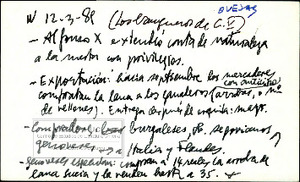 OVEJAS
N 12-3-89 (los banqueros de C.V)
- Alfonso X extendió carta de naturaleza
a la mesta con privilegios.
- Exportación: hacia septiembre los mercaderes
con anticipo
compraban la lana a los ganaderos (arrobas, o nº
de vellones). Entrega después de esquila: mayo.
- Compradores: burgaleses,
genoveses → a Italia y Flandes.
- genoveses especulan: compran a 14 reales la arroba de
lana sucia y la venden hasta a 35.